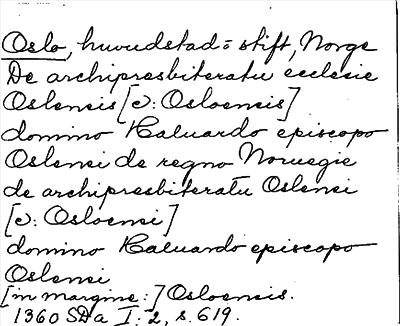 Oslo, huvudstad = stift, Norge
De archipresbiteratu ecclesie
Oslensis [ɔ: Osloensis]
domino Haluardo episcopo
Oslensi de regno Noruegie
de archipresbiteratu Oslensi
[ɔ: Osloensi]
domino Haluardo episcopo
Oslensi
[in margine:] Osloensis.
1360 SDa I: 2, s. 619.